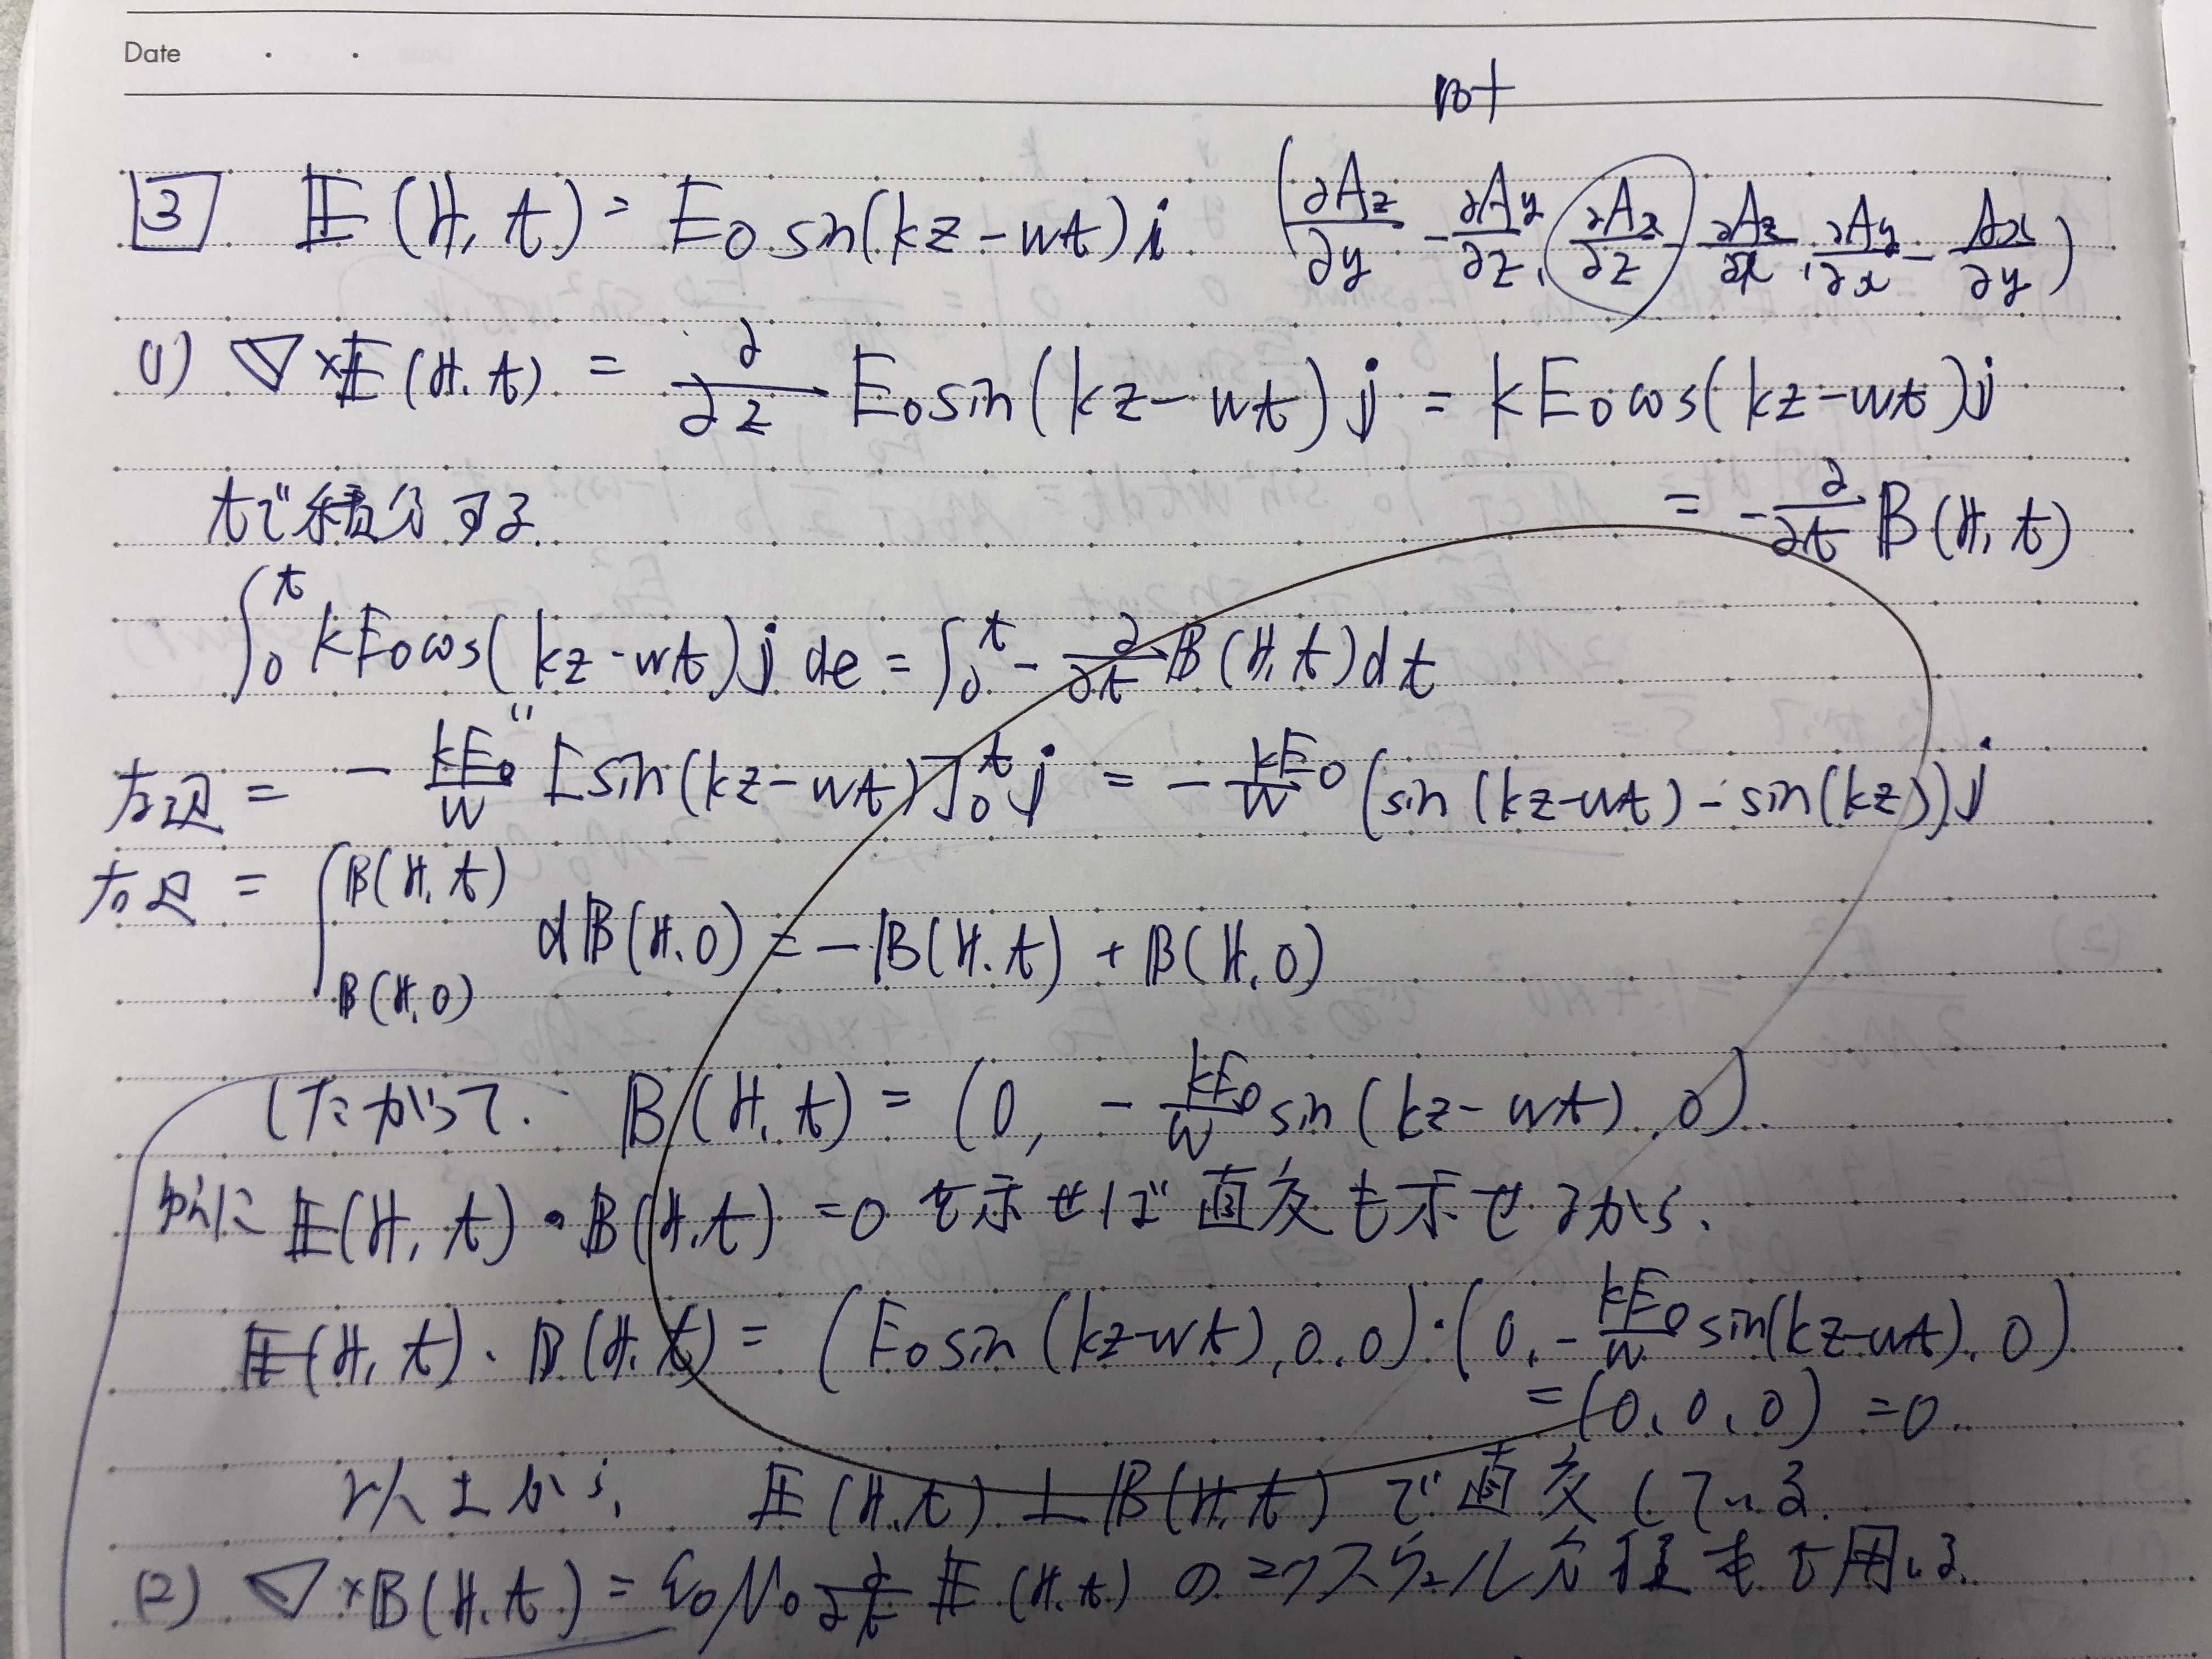 Date
rot
3 E(r, t) = E0 sin(kz-wt)i (∂Az/∂y - ∂Ay/∂z, ∂Ax/∂z - ∂Az/∂x, ∂Ay/∂x - Ax/∂y)
(1) ∇×E(r, t) = ∂/∂z E0 sin(kz-wt)j = kE0 cos(kz-wt)j
tで積分する. = -∂/∂t B(r, t)
∫0^t kE0 cos(kz-wt)j dt = ∫0^t -∂/∂t B(r, t)dt
左辺 = - kE0/w [sin(kz-wt)]0^t j = - kE0/w (sin(kz-wt) - sin(kz))j
右辺 = ∫B(r,0)^B(r,t) dB(r,0) = -B(r,t) + B(r,0)
したがって. B(r, t) = (0, - kE0/w sin(kz-wt), 0).
ゆえに E(r, t)・B(r, t) = 0 を示せば直交も示せるから.
E(r, t)・B(r, t) = (E0 sin(kz-wt), 0, 0)・(0, - kE0/w sin(kz-wt), 0)
= (0, 0, 0) = 0.
以上から, E(r, t) ⊥ B(r, t) で直交している.
(2) ∇×B(r, t) = ε0 μ0 ∂/∂t E(r, t) のマクスウェル方程式を用いる.